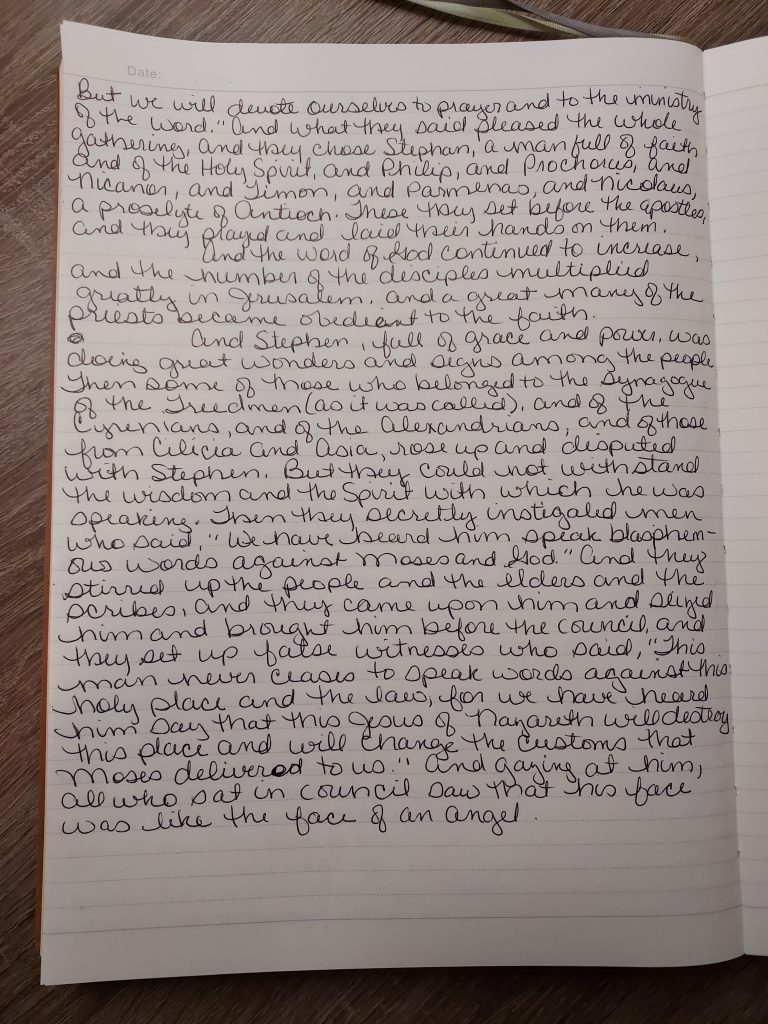 Date:
But we will devote ourselves to prayer and to the ministry
of the word." And what they said pleased the whole
gathering, and they chose Stephan, a man full of faith
and of the Holy Spirit, and Philip, and Prochorus, and
Nicanor, and Timon, and Parmenas, and Nicolaus,
a proselyte of Antioch. These they set before the apostles,
and they prayed and laid their hands on them.
And the word of God continued to increase,
and the number of the disciples multiplied
greatly in Jerusalem, and a great many of the
priests became obedient to the faith.
And Stephen, full of grace and power, was
doing great wonders and signs among the people
Then some of those who belonged to the synagogue
of the Freedmen (as it was called), and of the
Cyrenians, and of the Alexandrians, and of those
from Cilicia and Asia, rose up and disputed
with Stephen. But they could not withstand
the wisdom and the Spirit with which he was
speaking. Then they secretly instigated men
who said, "We have heard him speak blasphem-
ous words against Moses and God." And they
stirred up the people and the elders and the
scribes, and they came upon him and seized
him and brought him before the council, and
they set up false witnesses who said, "This
man never ceases to speak words against this
holy place and the law, for we have heard
him say that this Jesus of Nazareth will destroy
this place and will change the customs that
Moses delivered to us." And gazing at him,
all who sat in council saw that his face
was like the face of an angel.